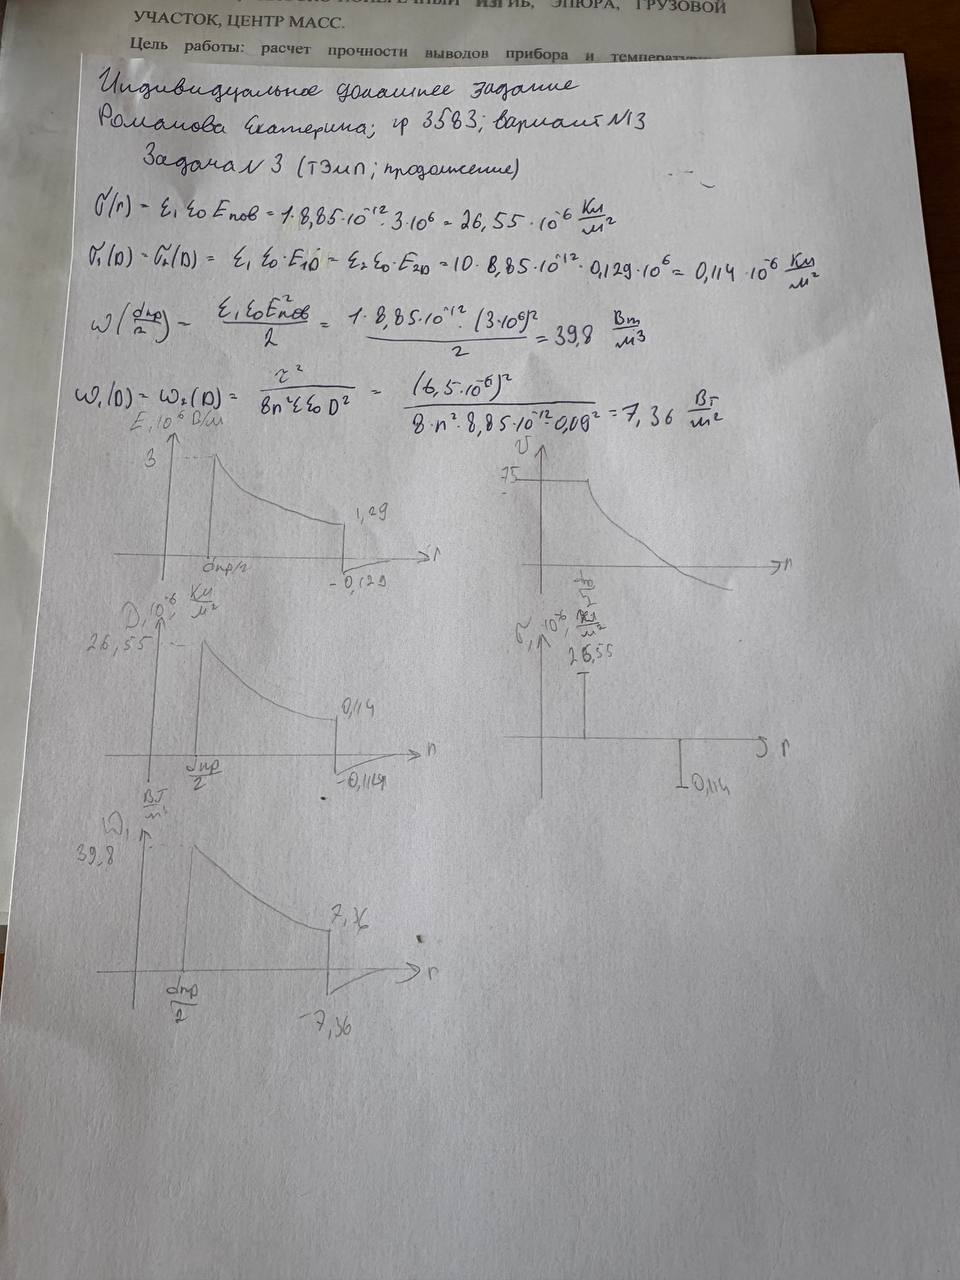 ИЗГИБ, ЭПЮРА, ГРУЗОВОЙ
УЧАСТОК, ЦЕНТР МАСС.
Цель работы: расчет прочности выводов прибора и
Индивидуальное домашнее задание
Романова Екатерина; гр 3583; вариант №13
Задача №3 (ТЭМП; продолжение)
σ(r) = ε₁ε₀Eпов = 1·8,85·10⁻¹²·3·10⁶ = 26,55·10⁻⁶ Кл/м²
σ₁(D) = σ₂(D) = ε₁ε₀·E₁D = ε₂ε₀·E₂D = 10·8,85·10⁻¹²·0,129·10⁶ = 0,114·10⁻⁶ Кл/м²
ω(dпр/2) = ε₁ε₀E²пов/2 = 1·8,85·10⁻¹²·(3·10⁶)²/2 = 39,8 Вт/м³
ω₁(D) = ω₂(D) = τ²/8π²εε₀D² = (6,5·10⁻⁶)²/8·π²·8,85·10⁻¹²·0,09² = 7,36 Вт/м²
E, 10⁶ В/м
3
1,29
r
dпр/2
-0,129
U
75
r
dпр/2
D, 10⁻⁶, Кл/м²
26,55
0,114
r
dпр/2
-0,114
σ, 10⁻⁶, Кл/м²
26,55
r
-0,114
ω, Вт/м³
39,8
7,36
r
dпр/2
-7,36